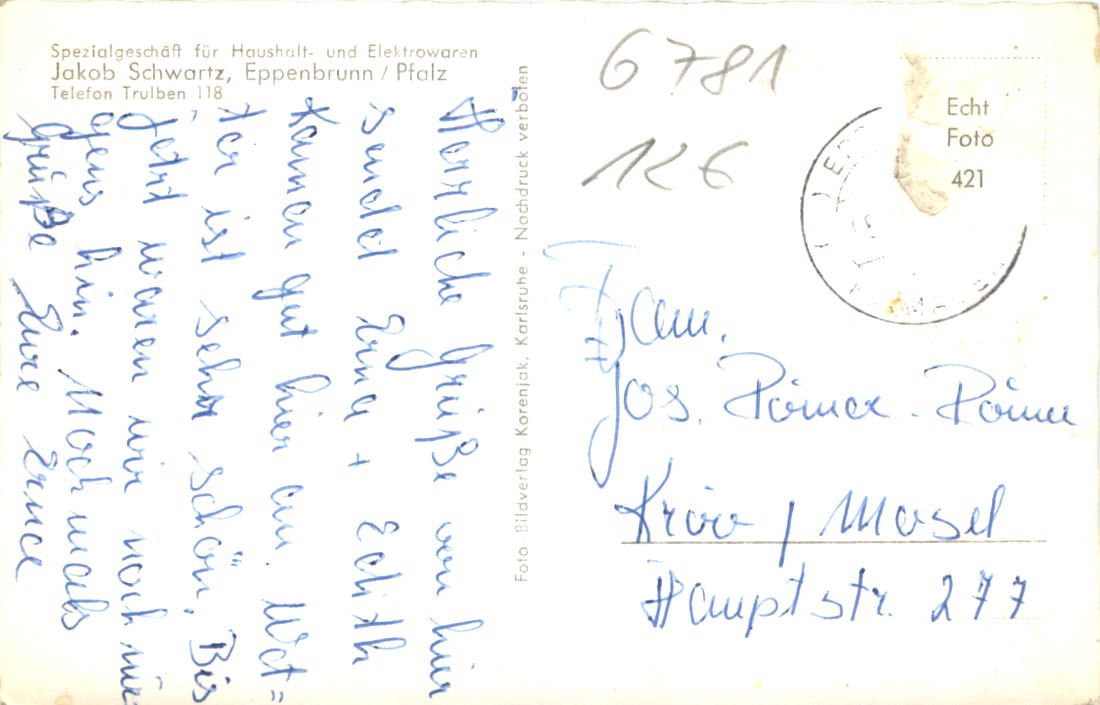 Spezialgeschäft für Haushalt- und Elektrowaren
Jakob Schwartz, Eppenbrunn / Pfalz
Telefon Trulben 118
Herrliche Grüße von hier
sendet Erna + Edith
Kamen gut hier an. Wet=
ter ist sehr schön, Bis
jetzt waren wir noch nir
gens hin. Nochmals
Grüße Eure Erna
Foto Bildverlag Korenjak, Karlsruhe - Nachdruck verboten
6781
126
Echt
Foto
421
Fam.
Jos.
Kröv / Mosel
Hauptstr. 277